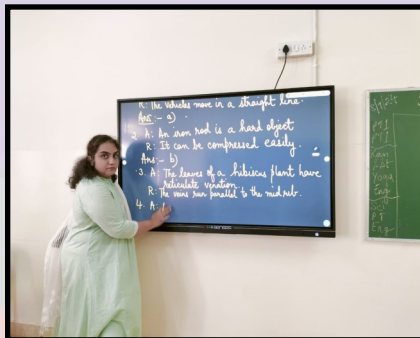 R: The vehicles move in a straight line.
Ans:- a)
2. A: An iron rod is a hard object
R: It can be compressed easily.
Ans:- b)
3. A: The leaves of a hibiscus plant have
reticulate venation
R: The veins run parallel to the midrib.
4. A:
PT
Eng